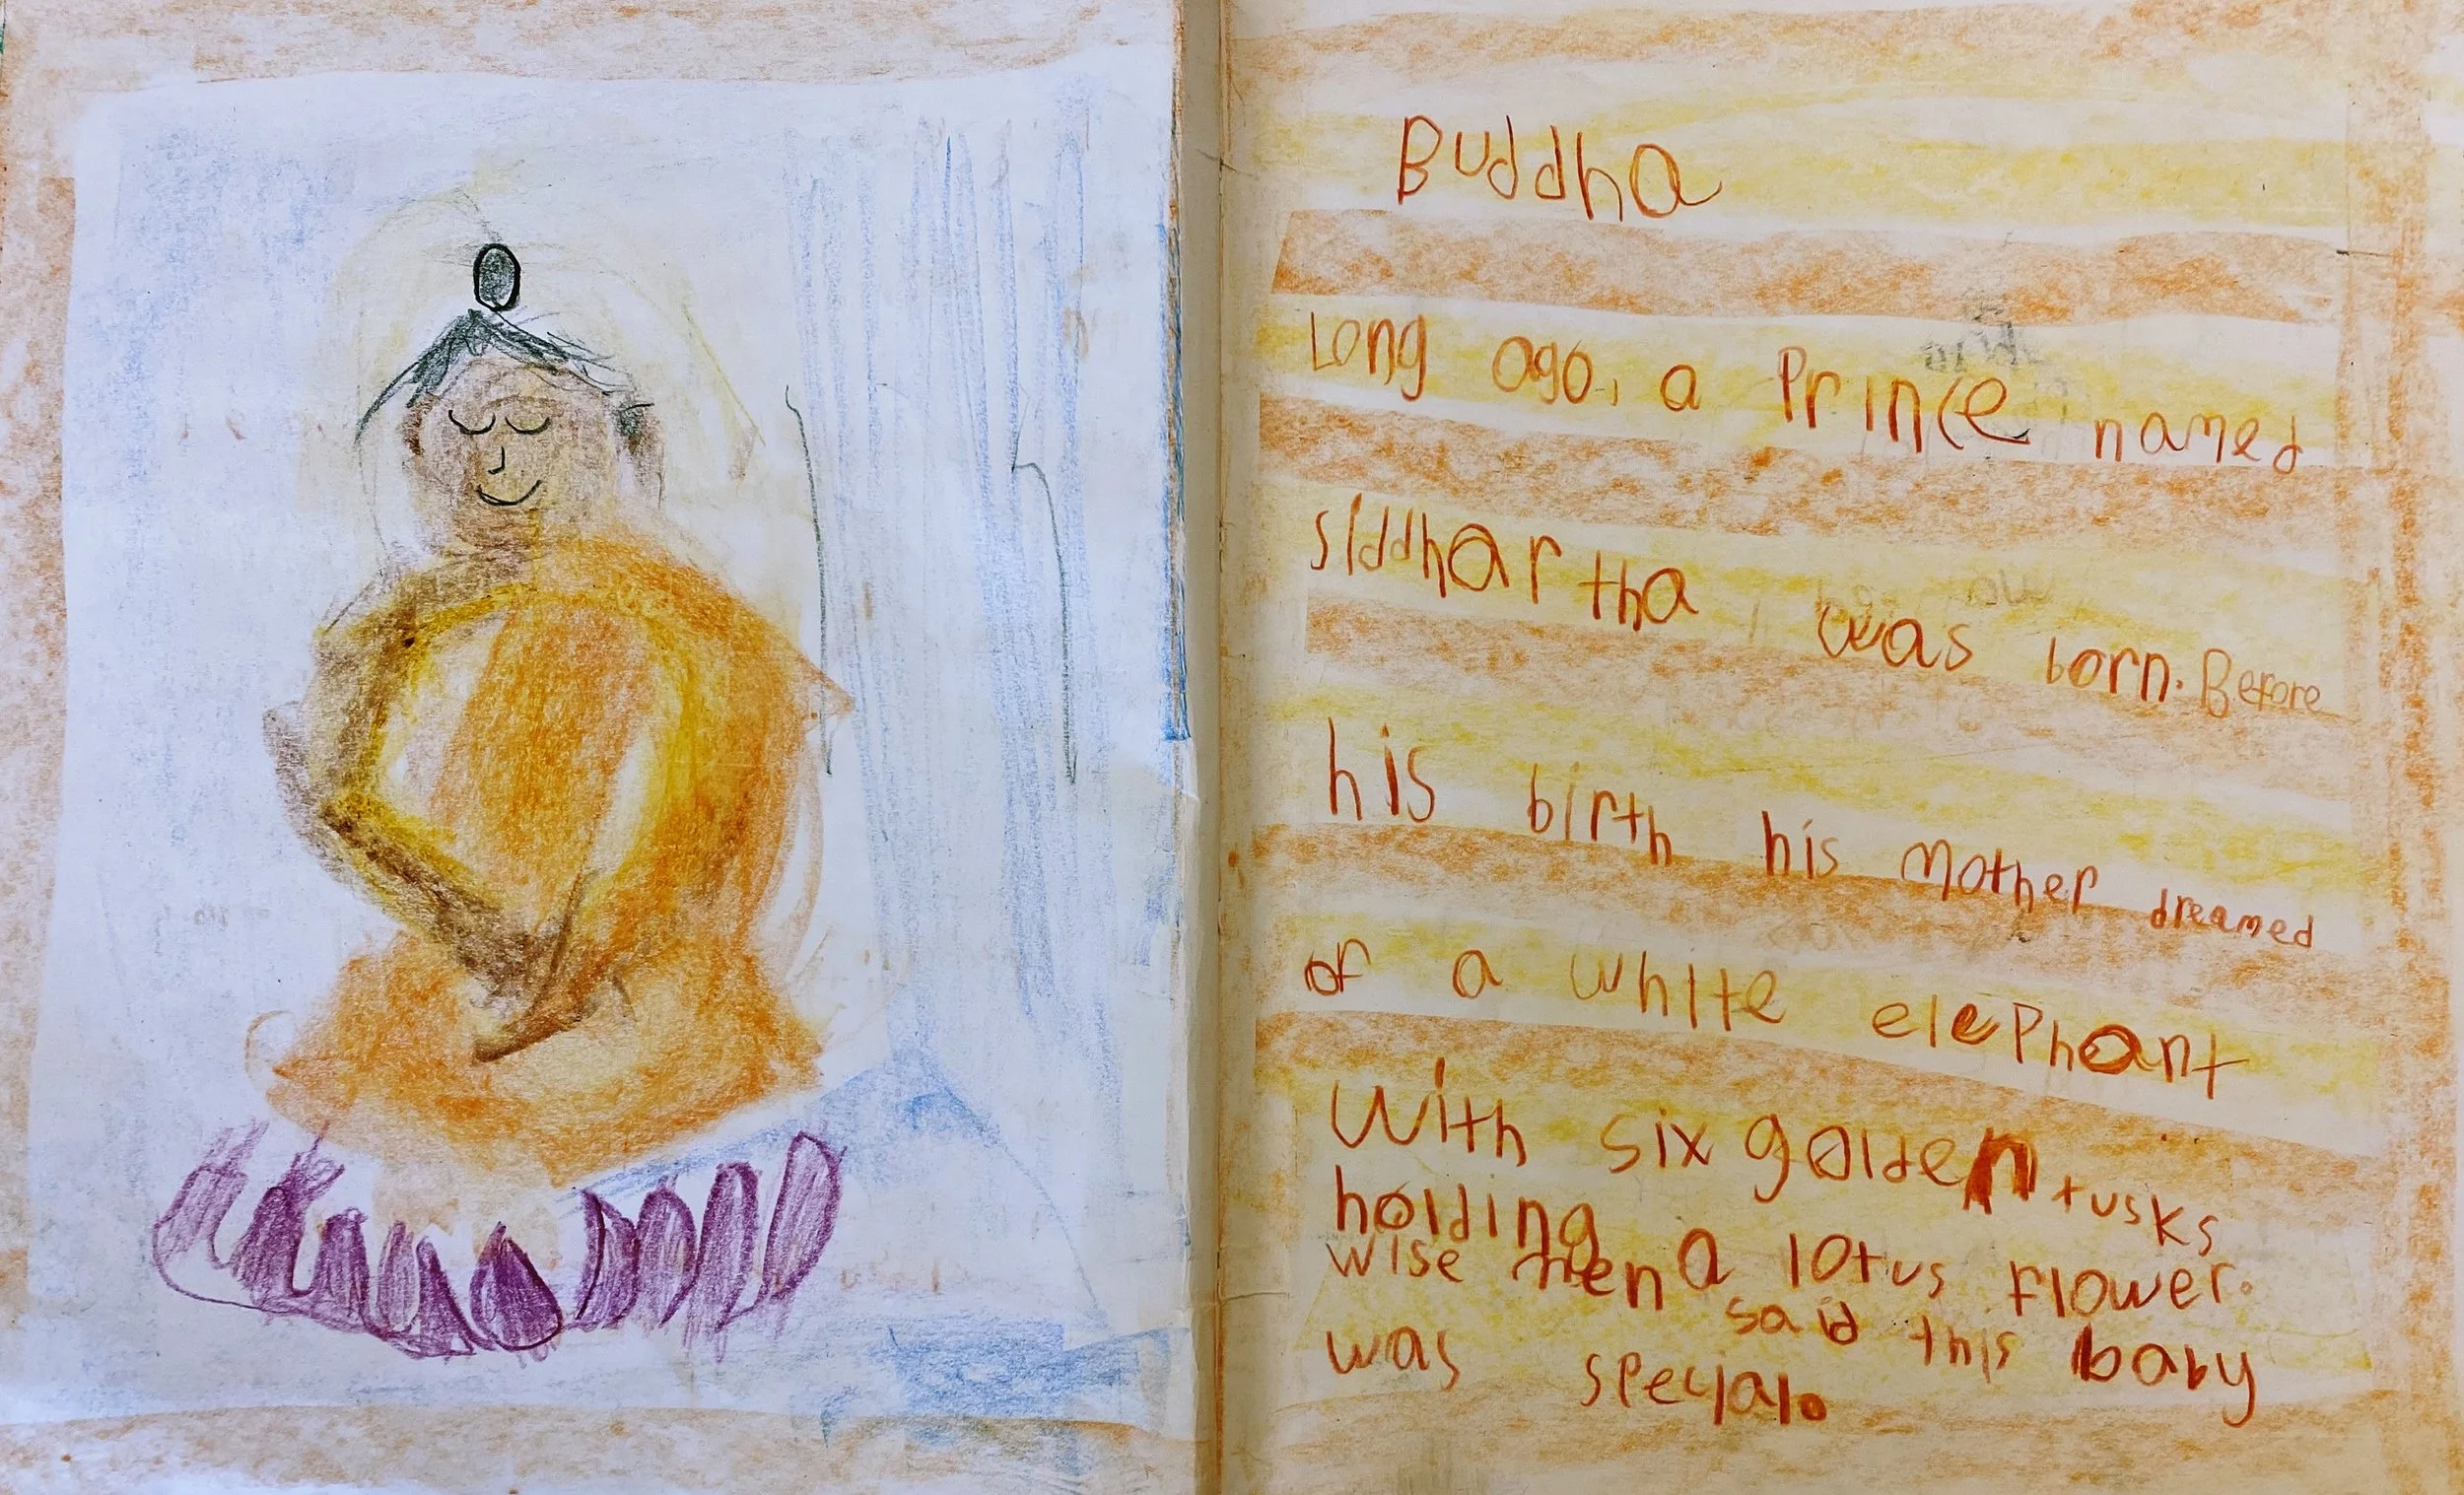 Buddha
Long ago, a Prince named
siddhartha was born. Before
his birth his mother dreamed
of a white elephant
With six golden tusks
holding a lotus flower.
wise men said this baby
was special.